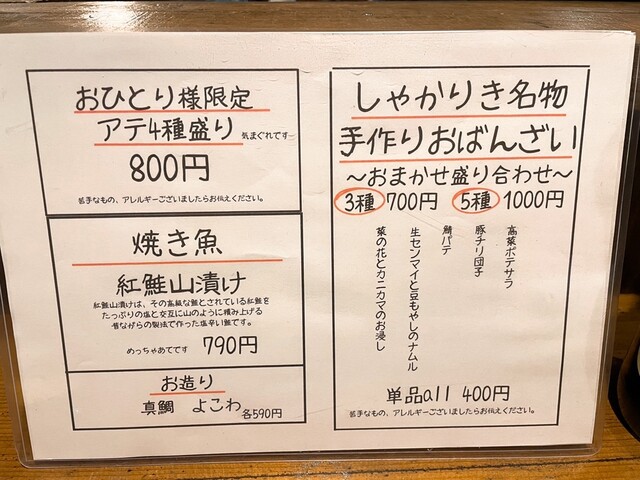 おひとり様限定
アテ4種盛り 気まぐれです
800円
苦手なもの、アレルギーございましたらお伝えください。
焼き魚
紅鮭山漬け
紅鮭山漬けは、その高級な鮭とされている紅鮭を
たっぷりの塩と交互に山のように積み上げる
昔ながらの製法で作った塩辛い鮭です。
めっちゃあてです 790円
お造り
真鯛 よこわ 各590円
しゃかりき名物
手作りおばんざい
〜おまかせ盛り合わせ〜
3種 700円 5種 1000円
高菜ポテサラ
豚チリ団子
鯖パテ
生センマイと豆もやしのナムル
菜の花とカニカマのお浸し
単品all 400円
苦手なもの、アレルギーございましたらお伝えください。